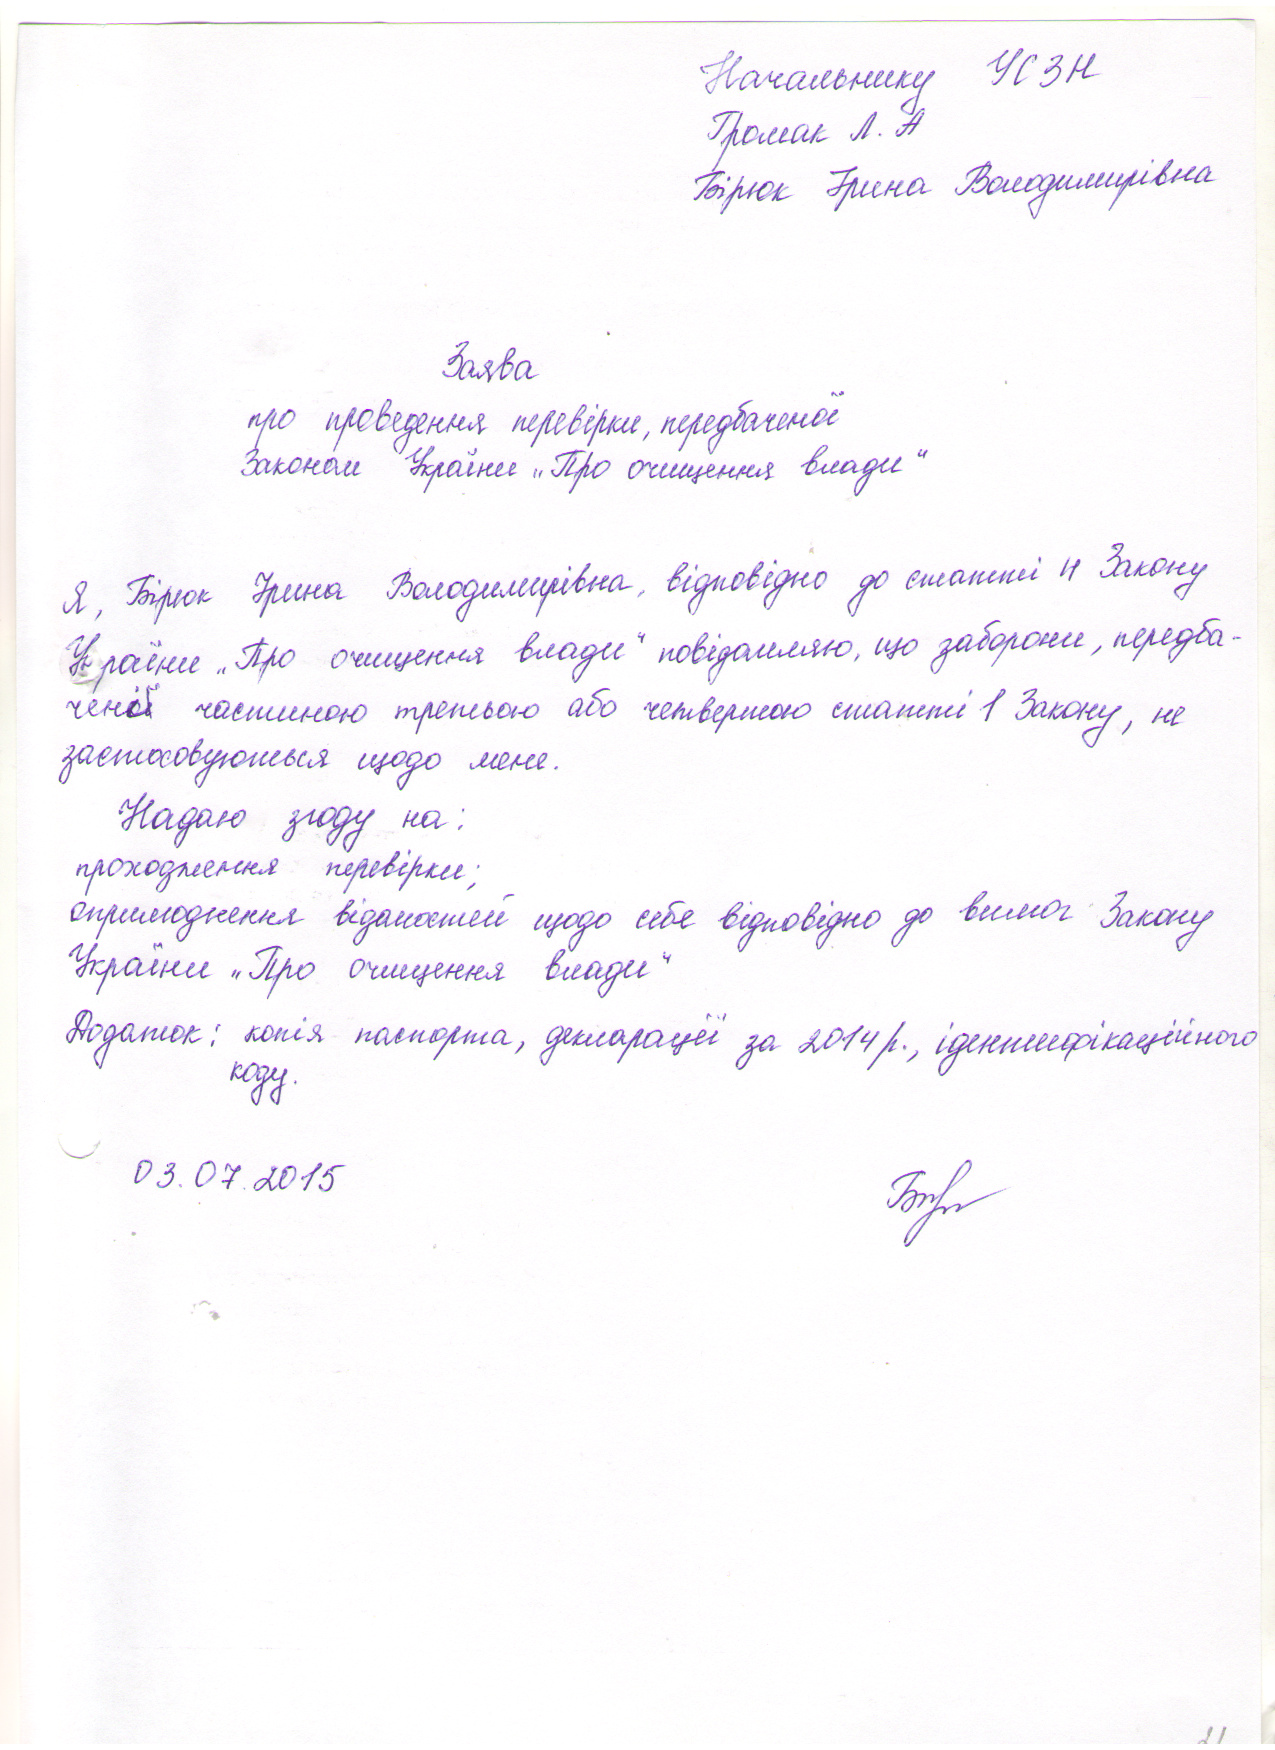 Начальнику УСЗН
Громак Л. А
Бірюк Ірина Володимирівна
Заява
про проведення перевірки, передбаченої
Законом України „Про очищення влади"
Я, Бірюк Ірина Володимирівна, відповідно до статті 4 Закону
України „Про очищення влади" повідомляю, що заборони, передба-
ченої частиною третьою або четвертою статті 1 Закону, не
застосовуються щодо мене.
Надаю згоду на:
проходження перевірки;
оприлюднення відомостей щодо себе відповідно до вимог Закону
України „Про очищення влади"
Додаток: копія паспорта, декларації за 2014 р., ідентифікаційного
коду.
03.07.2015